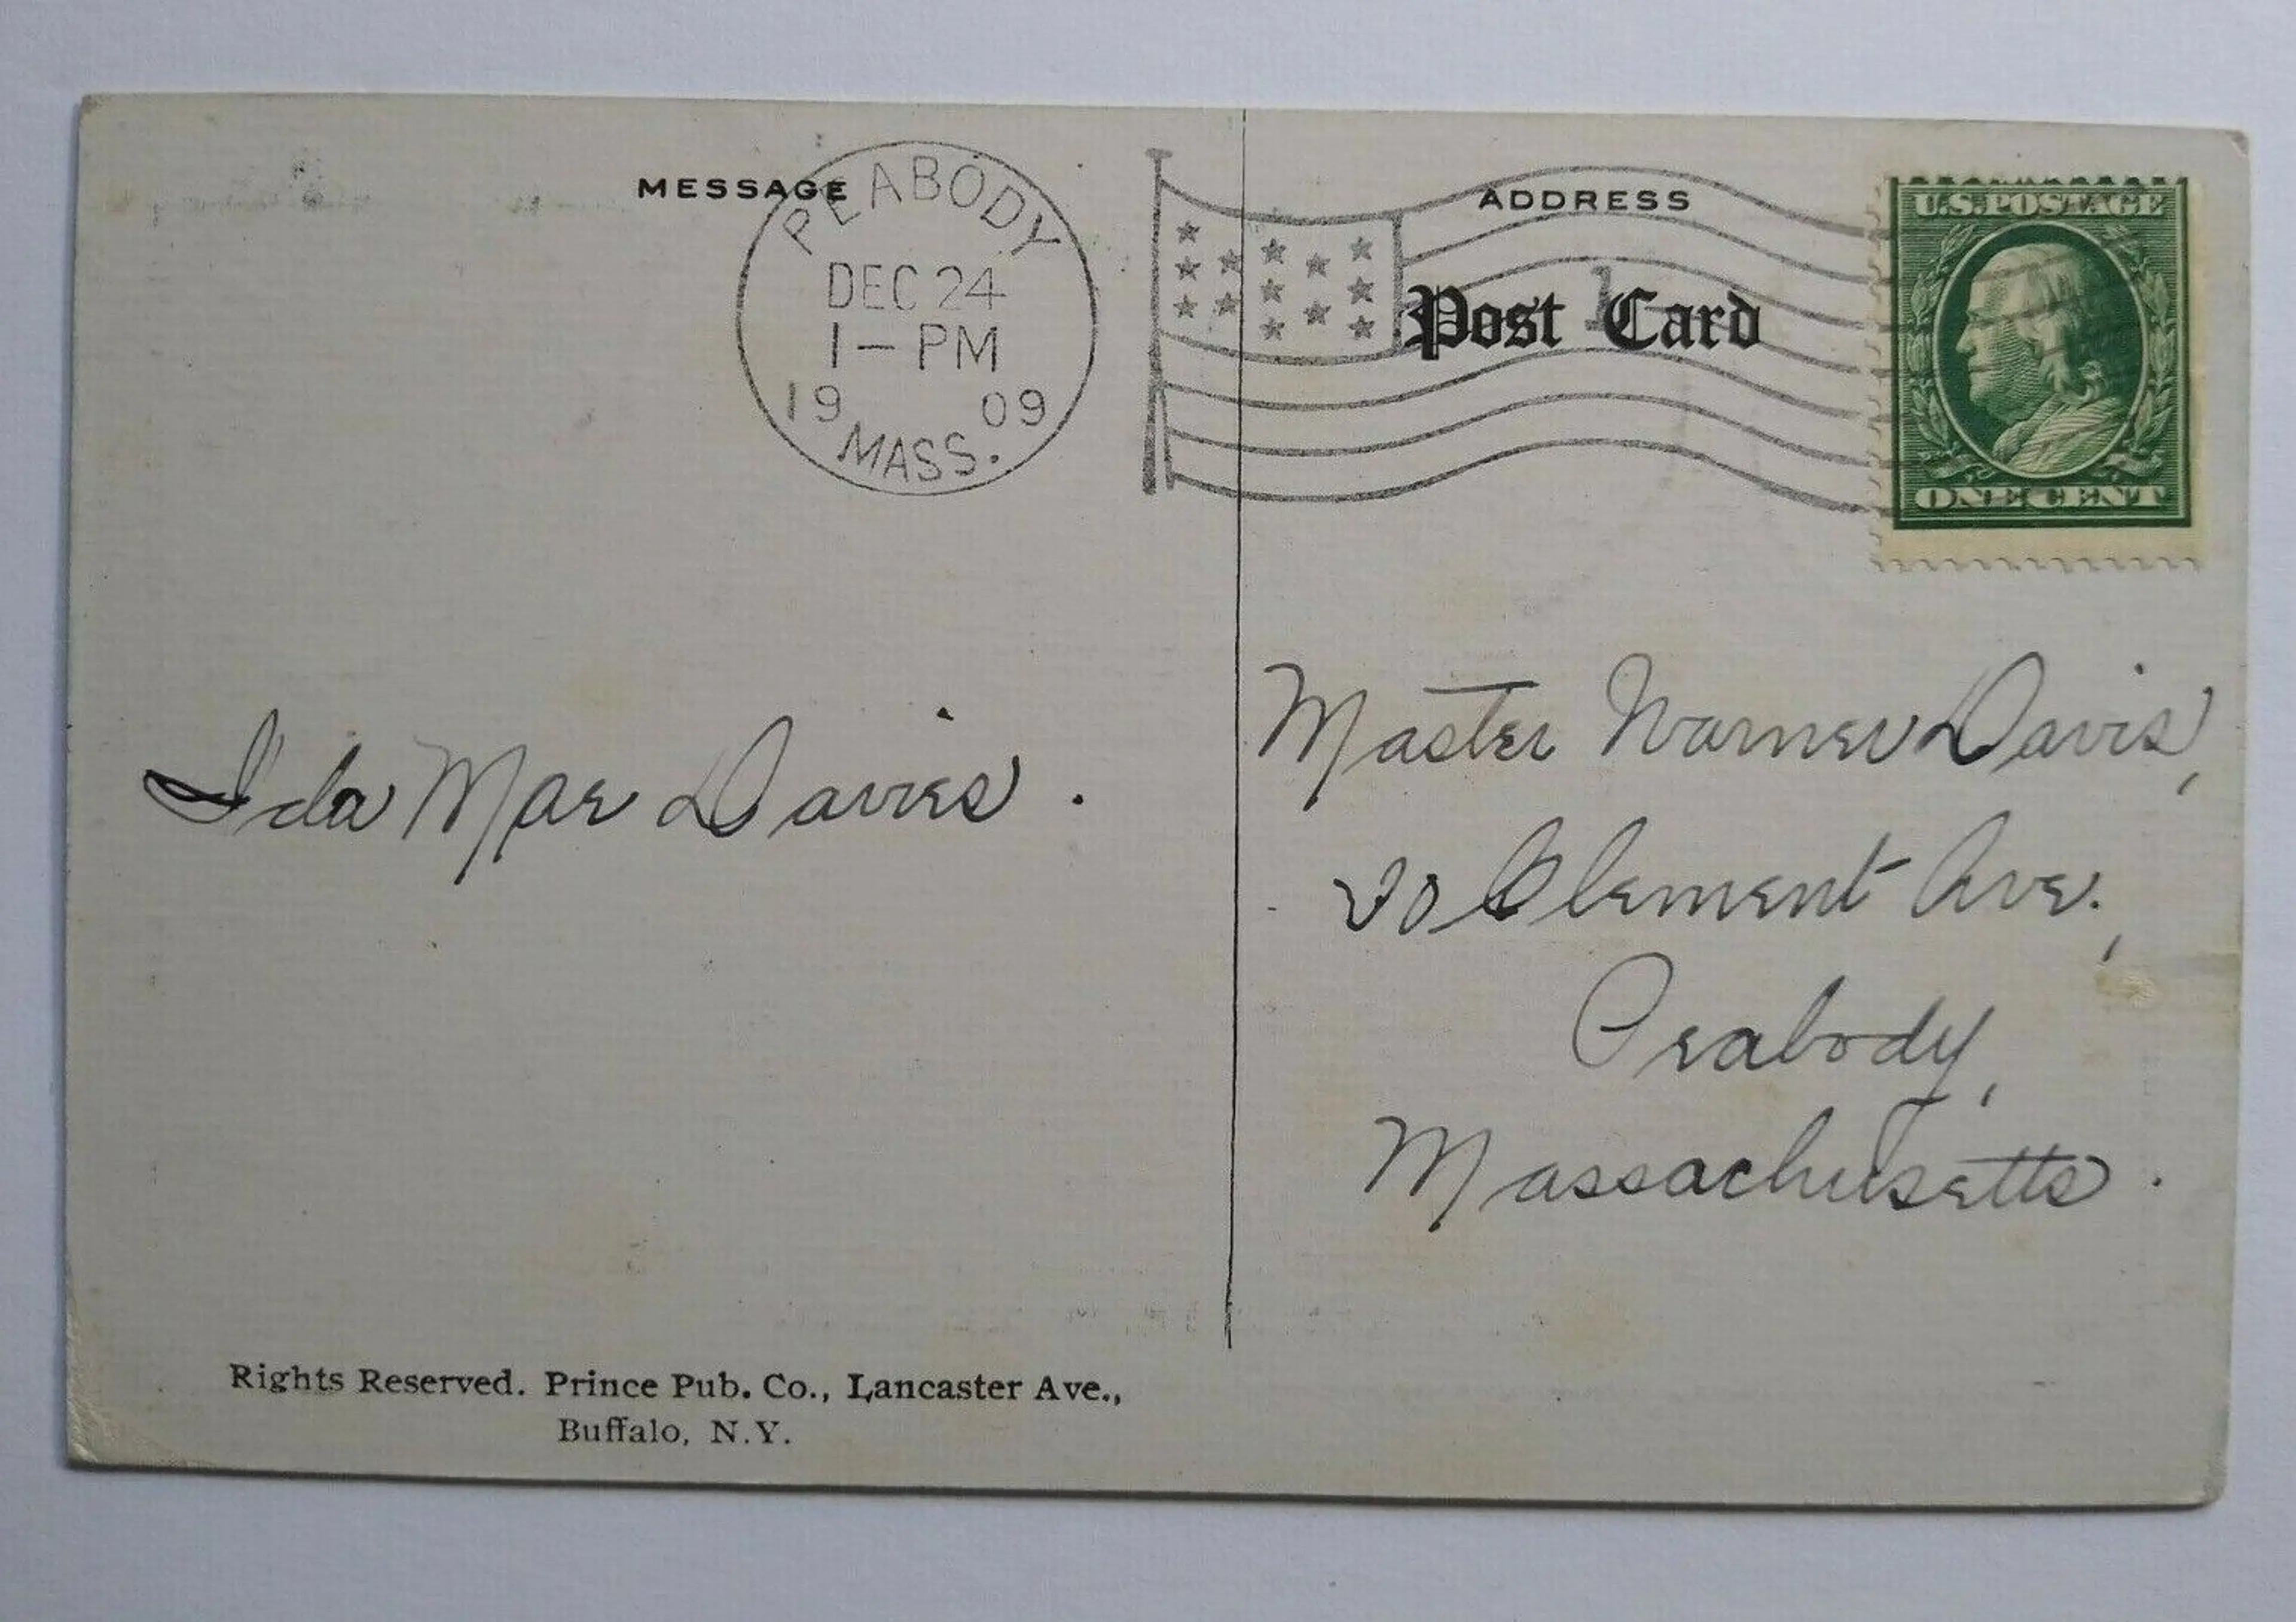 MESSAGE
PEABODY
DEC 24
1 - PM
19 09
MASS.
ADDRESS
Post Card
1
U.S. POSTAGE
ONE CENT
Ida Mae Davies.
Master Warner Davis,
20 Clement Ave.,
Peabody,
Massachusetts.
Rights Reserved. Prince Pub. Co., Lancaster Ave.,
Buffalo, N.Y.